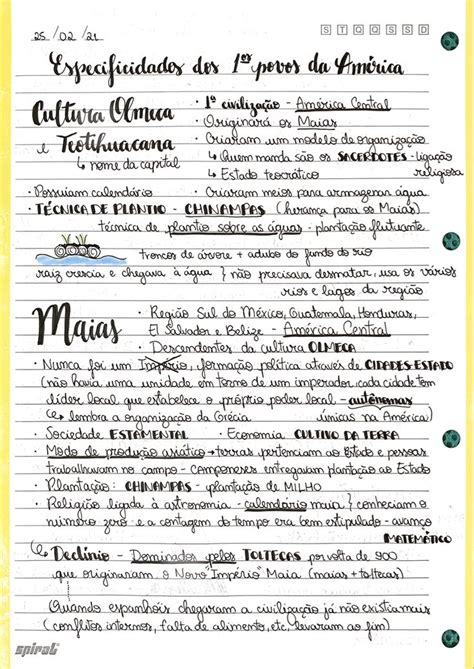 25/02/21
S T Q Q S S D
Especificidades dos 1os povos da América
Cultura Olmeca
e Teotihuacana
↳ nome da capital
• 1ª civilização - América Central
• Originará os Maias
• Criaram um modelo de organização
↳ Quem manda são os SACERDOTES - ligação religiosa
↳ Estado teocrático
• Possuiam calendário
• Criaram meios para armagenar água
• TÉCNICA DE PLANTIO - CHINAMPAS (herança para os Maias)
técnica de plantio sobre as águas - plantação flutuante
troncos de árvore + adubo do fundo do rio
raiz crescia e chegava à água } não precisava desmatar, usa os vários
rios e lagos da região
Maias
• Região Sul do México, Guatemala, Honduras,
El Salvador e Belize - América Central
• Descendentes da cultura OLMECA
• Nunca foi um Império, formação política através de CIDADES-ESTADO
(não havia uma unidade em termo de um imperador, cada cidade tem
líder local que estabelece o próprio poder local - autônomas
(↳ lembra a organização da Grécia únicas na América)
• Sociedade ESTAMENTAL • Economia CULTIVO DA TERRA
• Modo de produção asiático → terras pertenciam ao Estado e pessoas
trabalhavam no campo - camponeses entregavam plantação ao Estado
• Plantação: CHINAMPAS - plantação de MILHO
• Religião ligada à astronomia - calendário maia } conheciam o
número zero e a contagem do tempo era bem estipulado - avanço
MATEMÁTICO
↳ Declínio - Dominados pelos TOLTECAS por volta de 900
que originaram o Novo "Império" Maia (maias + toltecas)
Quando espanhóis chegaram a civilização já não existia mais
(conflitos internos, falta de alimento, etc, levaram ao fim)
spiral